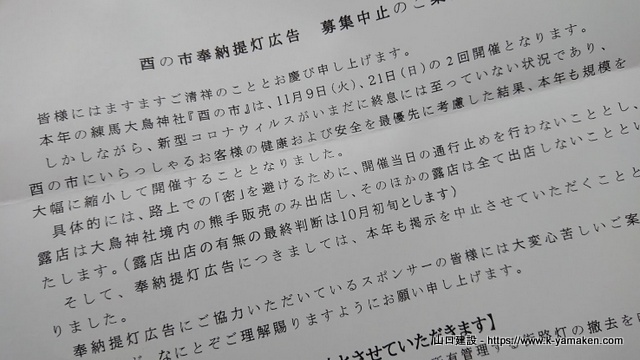 酉の市奉納提灯広告　募集中止のご案
皆様にはますますご清祥のこととお慶び申し上げます。
本年の練馬大鳥神社『酉の市』は、11月9日(火)、21日(日)の2回開催となります。
しかしながら、新型コロナウィルスがいまだに終息には至っていない状況であり、
酉の市にいらっしゃるお客様の健康および安全を最優先に考慮した結果、本年も規模を
大幅に縮小して開催することとなりました。
具体的には、路上での「密」を避けるために、開催当日の通行止めを行わないこととし、
露店は大鳥神社境内の熊手販売のみ出店し、そのほかの露店は全て出店しないことと
たします。(露店出店の有無の最終判断は10月初旬とします)
そして、奉納提灯広告につきましては、本年も掲示を中止させていただくことと
りました。
奉納提灯広告にご協力いただいているスポンサーの皆様には大変心苦しいご案
なにとぞご理解賜りますようにお願い申し上げます。
とさせていただきます】
管理する街路灯の撤去を
山口建設 - https://www.k-yamaken.com